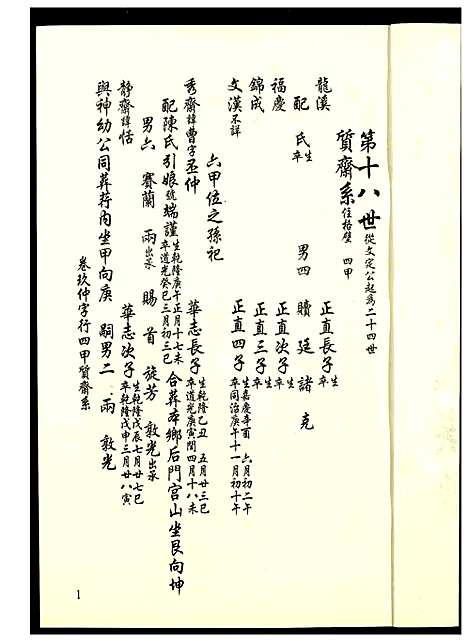 第十八世 從文定公起為二十四世
質齋系 住格壁 四甲
龍溪 正直長子 生卒
配 氏 生卒 男四 贖 廷 諸 克
福慶 正直次子 生卒
錦成 正直三子 生卒
文漢 不詳 正直四子 生嘉慶辛酉 六月初二午 卒同治庚午十一月初十午
六甲位之孫祀
秀齋 諱曹字丕仲 華志長子 生乾隆乙丑 五月廿三巳 卒道光庚寅閏四月十八未
配陳氏引娘號端謹 生乾隆庚午正月十七未 卒道光癸巳三月初三巳 合葬本鄉后門宮山坐艮向坤
男六 賽蘭 兩出承 賜 首 旋芳 敦光出承
靜齋 諱恬 華志次子 生乾隆戊辰七月廿七巳 卒乾隆戊申三月廿八寅
與神幼公同葬荇內坐甲向庚 嗣男二 兩 敦光
卷玖仲字行四甲質齋系
1